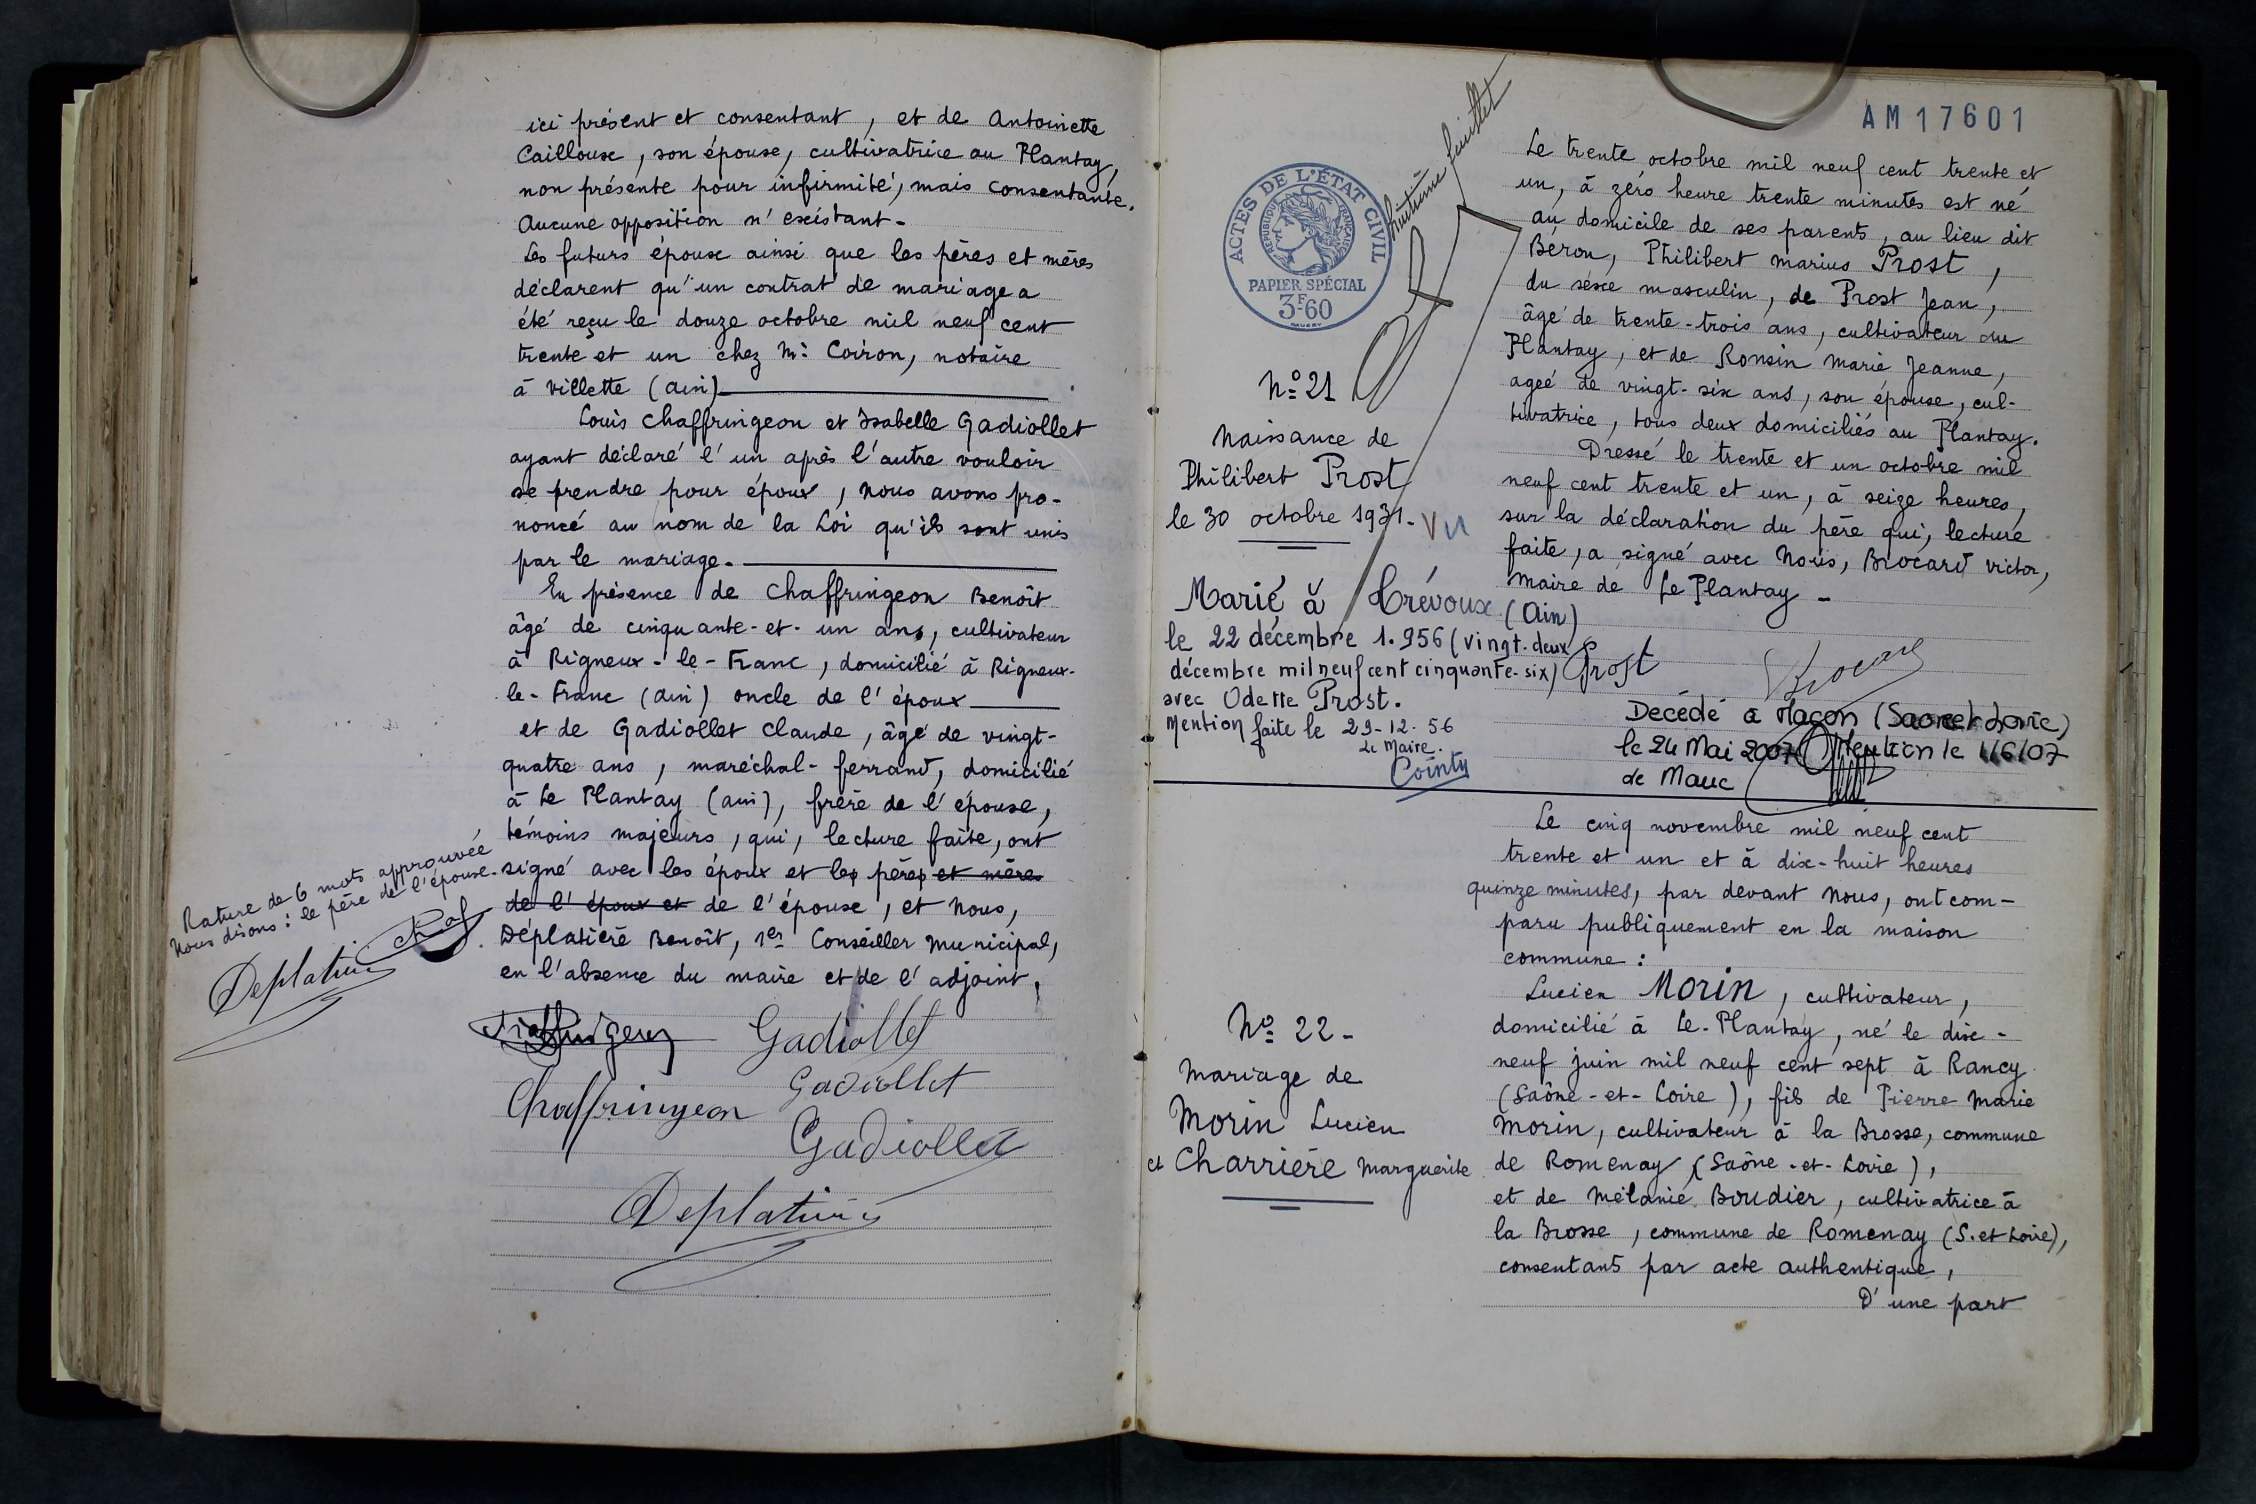 ici présent et consentant, et de Antoinette
Cailloux, son épouse, cultivatrice au Plantay,
non présente pour infirmité, mais consentante.
Aucune opposition n'existant.
Les futurs époux ainsi que les pères et mères
déclarent qu'un contrat de mariage a
été reçu le douze octobre mil neuf cent
trente et un chez Me Coiron, notaire
à Villette (Ain)
Louis Chaffringeon et Isabelle Gadiollet
ayant déclaré l'un après l'autre vouloir
se prendre pour époux, nous avons pro-
noncé au nom de la Loi qu'ils sont unis
par le mariage.
En présence de Chaffringeon Benoît
âgé de cinquante-et-un ans, cultivateur
à Rigneux-le-Franc, domicilié à Rigneux-
le-Franc (Ain) oncle de l'époux
et de Gadiollet Claude, âgé de vingt-
quatre ans, maréchal-ferrant, domicilié
à Le Plantay (Ain), frère de l'épouse,
témoins majeurs, qui, lecture faite, ont
signé avec les époux et les pères et mères
de l'époux et de l'épouse, et Nous,
Déplatière Benoît, 1er Conseiller municipal,
en l'absence du maire et de l'adjoint.
Rature de 6 mots approuvée
Nous disons : le père de l'épouse.
Chaf
Deplatière
Gadiollet
Chaffringeon
Gadiollet
Gadiollet
Deplatière
AM17601
ACTES DE L'ÉTAT CIVIL
RÉPUBLIQUE FRANÇAISE
PAPIER SPÉCIAL
3F60
huitième feuillet
No 21
Naissance de
Philibert Prost
le 30 octobre 1931.
Vu
Marié à Trévoux (Ain)
le 22 décembre 1.956 (vingt-deux
décembre mil neuf cent cinquante-six)
avec Odette Prost.
Mention faite le 29-12-56
Le Maire.
Cointy
Le trente octobre mil neuf cent trente et
un, à zéro heure trente minutes est né
au domicile de ses parents, au lieu dit
Béron, Philibert Marius Prost,
du sexe masculin, de Prost Jean,
âgé de trente-trois ans, cultivateur au
Plantay, et de Ronsin Marie Jeanne,
agée de vingt-six ans, son épouse, cul-
tivatrice, tous deux domiciliés au Plantay.
Dressé le trente et un octobre mil
neuf cent trente et un, à seize heures,
sur la déclaration du père qui, lecture
faite, a signé avec Nous, Brocard Victor,
Maire de Le Plantay -
Prost
VBrocard
Decédé à Macon (Saone et Loire)
le 24 Mai 2007 Mention le 1/6/07
No 22 -
Mariage de
Morin Lucien
et Charrière Marguerite
Le cinq novembre mil neuf cent
trente et un et à dix-huit heures
quinze minutes, par devant Nous, ont com-
paru publiquement en la maison
commune :
Lucien Morin, cultivateur,
domicilié à Le-Plantay, né le dix-
neuf juin mil neuf cent sept à Rancy
(Saône-et-Loire), fils de Pierre Marie
Morin, cultivateur à la Brosse, commune
de Romenay (Saône-et-Loire),
et de Mélanie Boudier, cultivatrice à
la Brosse, commune de Romenay (S. et Loire),
consentants par acte authentique,
D'une part